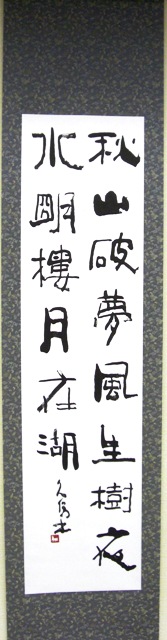 秋山破夢風生樹夜
水明樓月在湖